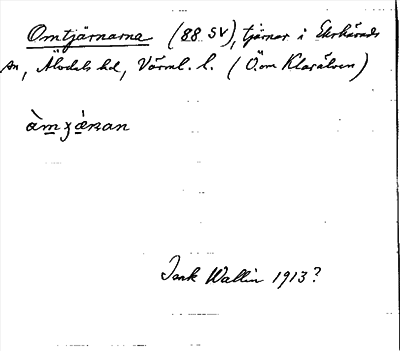 Omtjärnarna (88 SV), tjärnar i Ekshärads
sn, Älvdals hd, Värml. l. (Ö. om Klarälven)
Isak Wallin 1913?